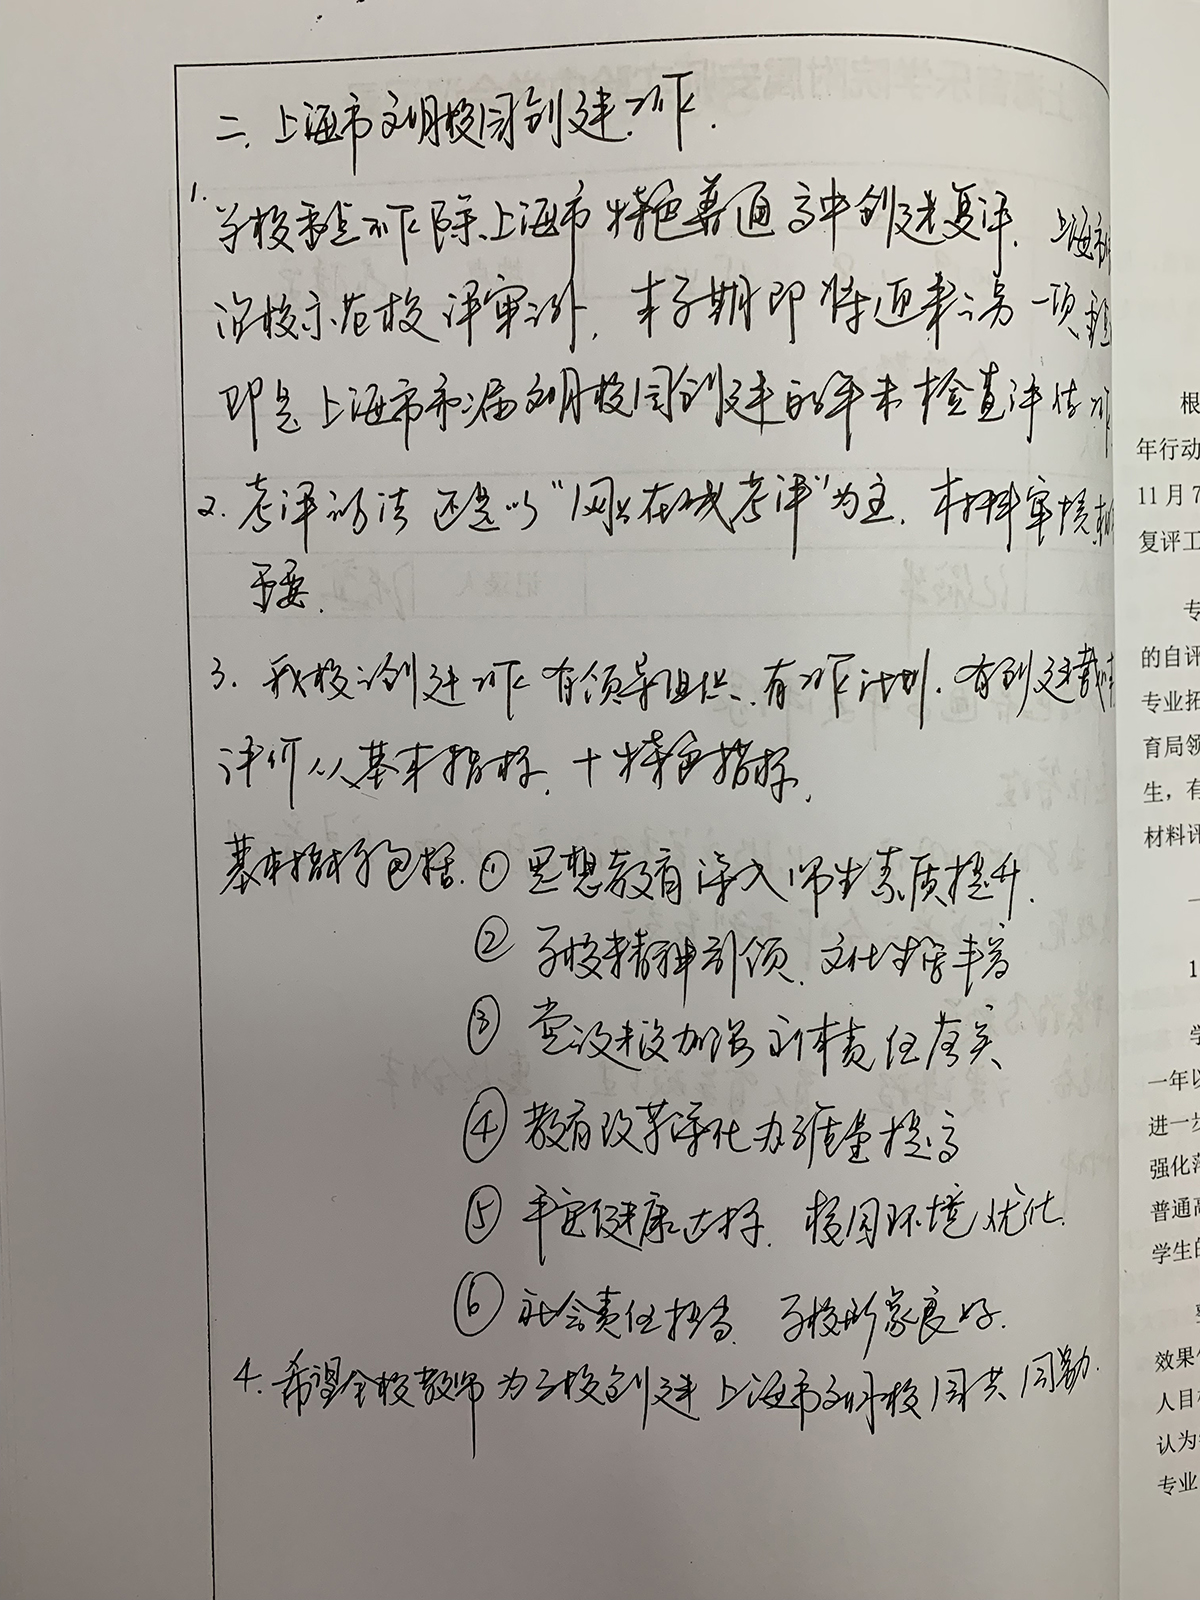 二、上海市文明校园创建工作.
1. 学校重点工作除上海市特色普通高中创建复评、上海市依
治校示范校评审外, 本学期即将迎来之另一项重
即是上海市第二届文明校园创建的年末检查评估工作
2. 考评办法还是以“网上在线考评”为主, 材料审核
重要.
3. 我校之创建工作有领导组织、有工作计划、有创建载体
评价从基本指标 + 特色指标.
基本指标包括 ① 思想教育深入 师生素质提升.
② 学校精神引领 文化生活丰富
③ 党建建设加强 主体责任落实
④ 教育改革深化 办学质量提高
⑤ 平安健康达标 校园环境优化.
⑥ 社会责任担当 学校形象良好.
4. 希望全校教师为学校创建上海市文明校园共同努力.
根
年行动
11月7
复评工
专
的自评
专业拓
育局领
生，有
材料评
一
1
学
一年以
进一步
强化落
普通高
学生的
效果
人目标
认为
专业
记录人